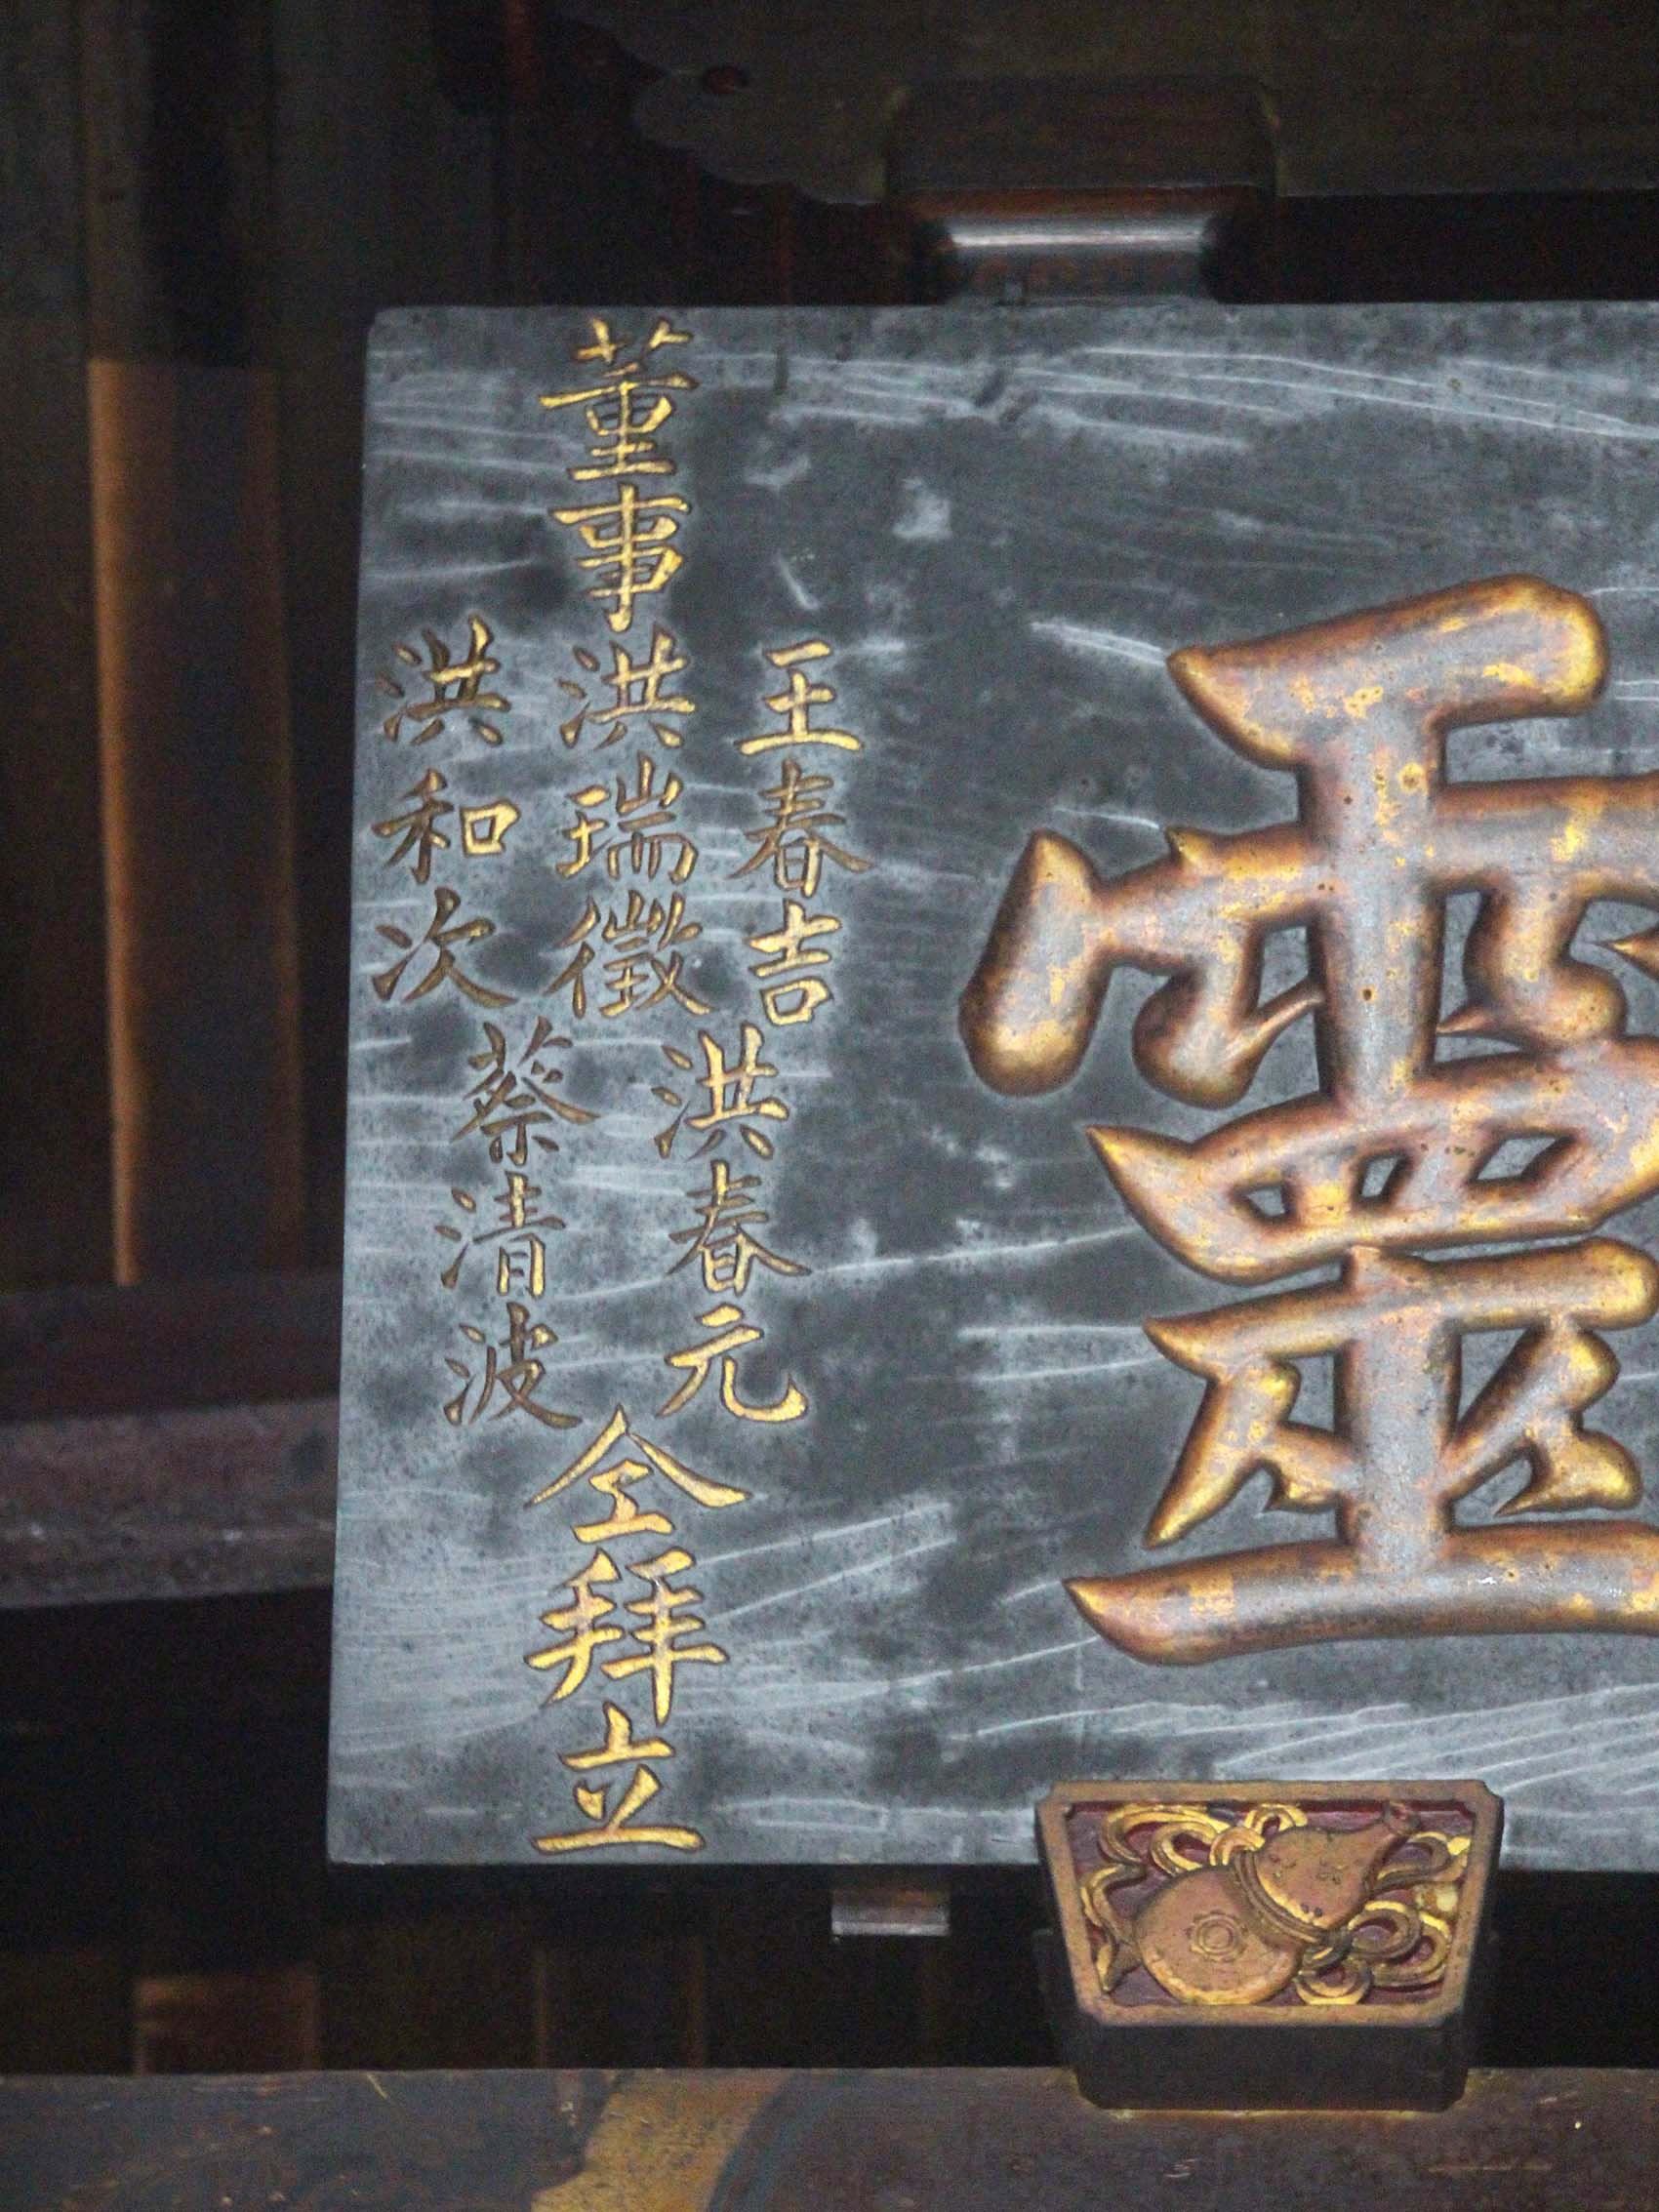 靈
董事
王春吉
洪瑞徵
洪和次
洪春元
蔡清波
仝拜立